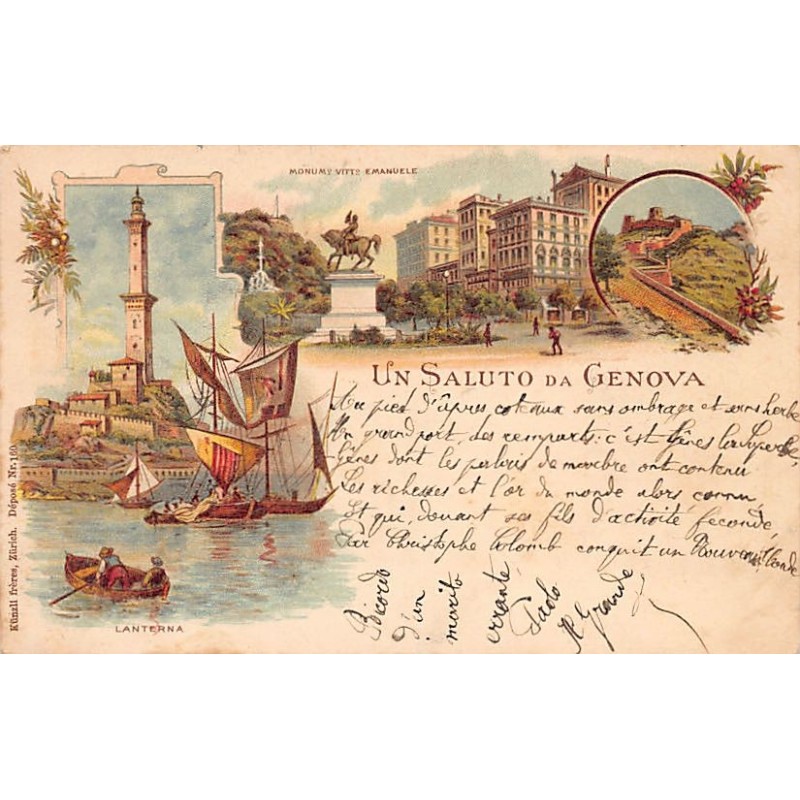 MONUMᵀᴼ VITTᴼ EMANUELE
UN SALUTO DA GENOVA
Au pied d'âpres coteaux sans ombrage et sans herbe
Un grand port, des remparts: c'est Gênes la Superbe,
Gênes dont les palais de marbre ont contenu
Les richesses et l'or du monde alors connu,
Et qui, douant ses fils d'activité féconde,
Par Christophe Colomb conquit un Nouveau Monde
Ricordo
d'un
marito
errante
Paolo
LANTERNA
Künzli frères, Zürich. Déposé Nr. 160.